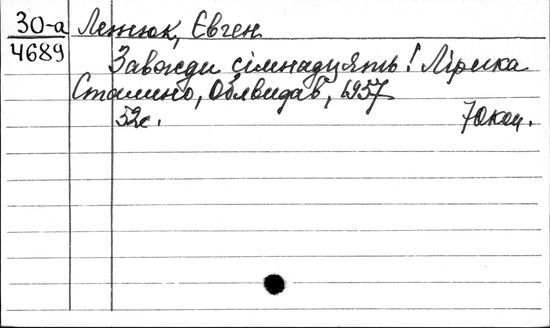 30-а
4689
Летюк, Євген
Завжди сімнадцять! Лірика
Сталіно, Облвидав, 1957
52с. 70коп.